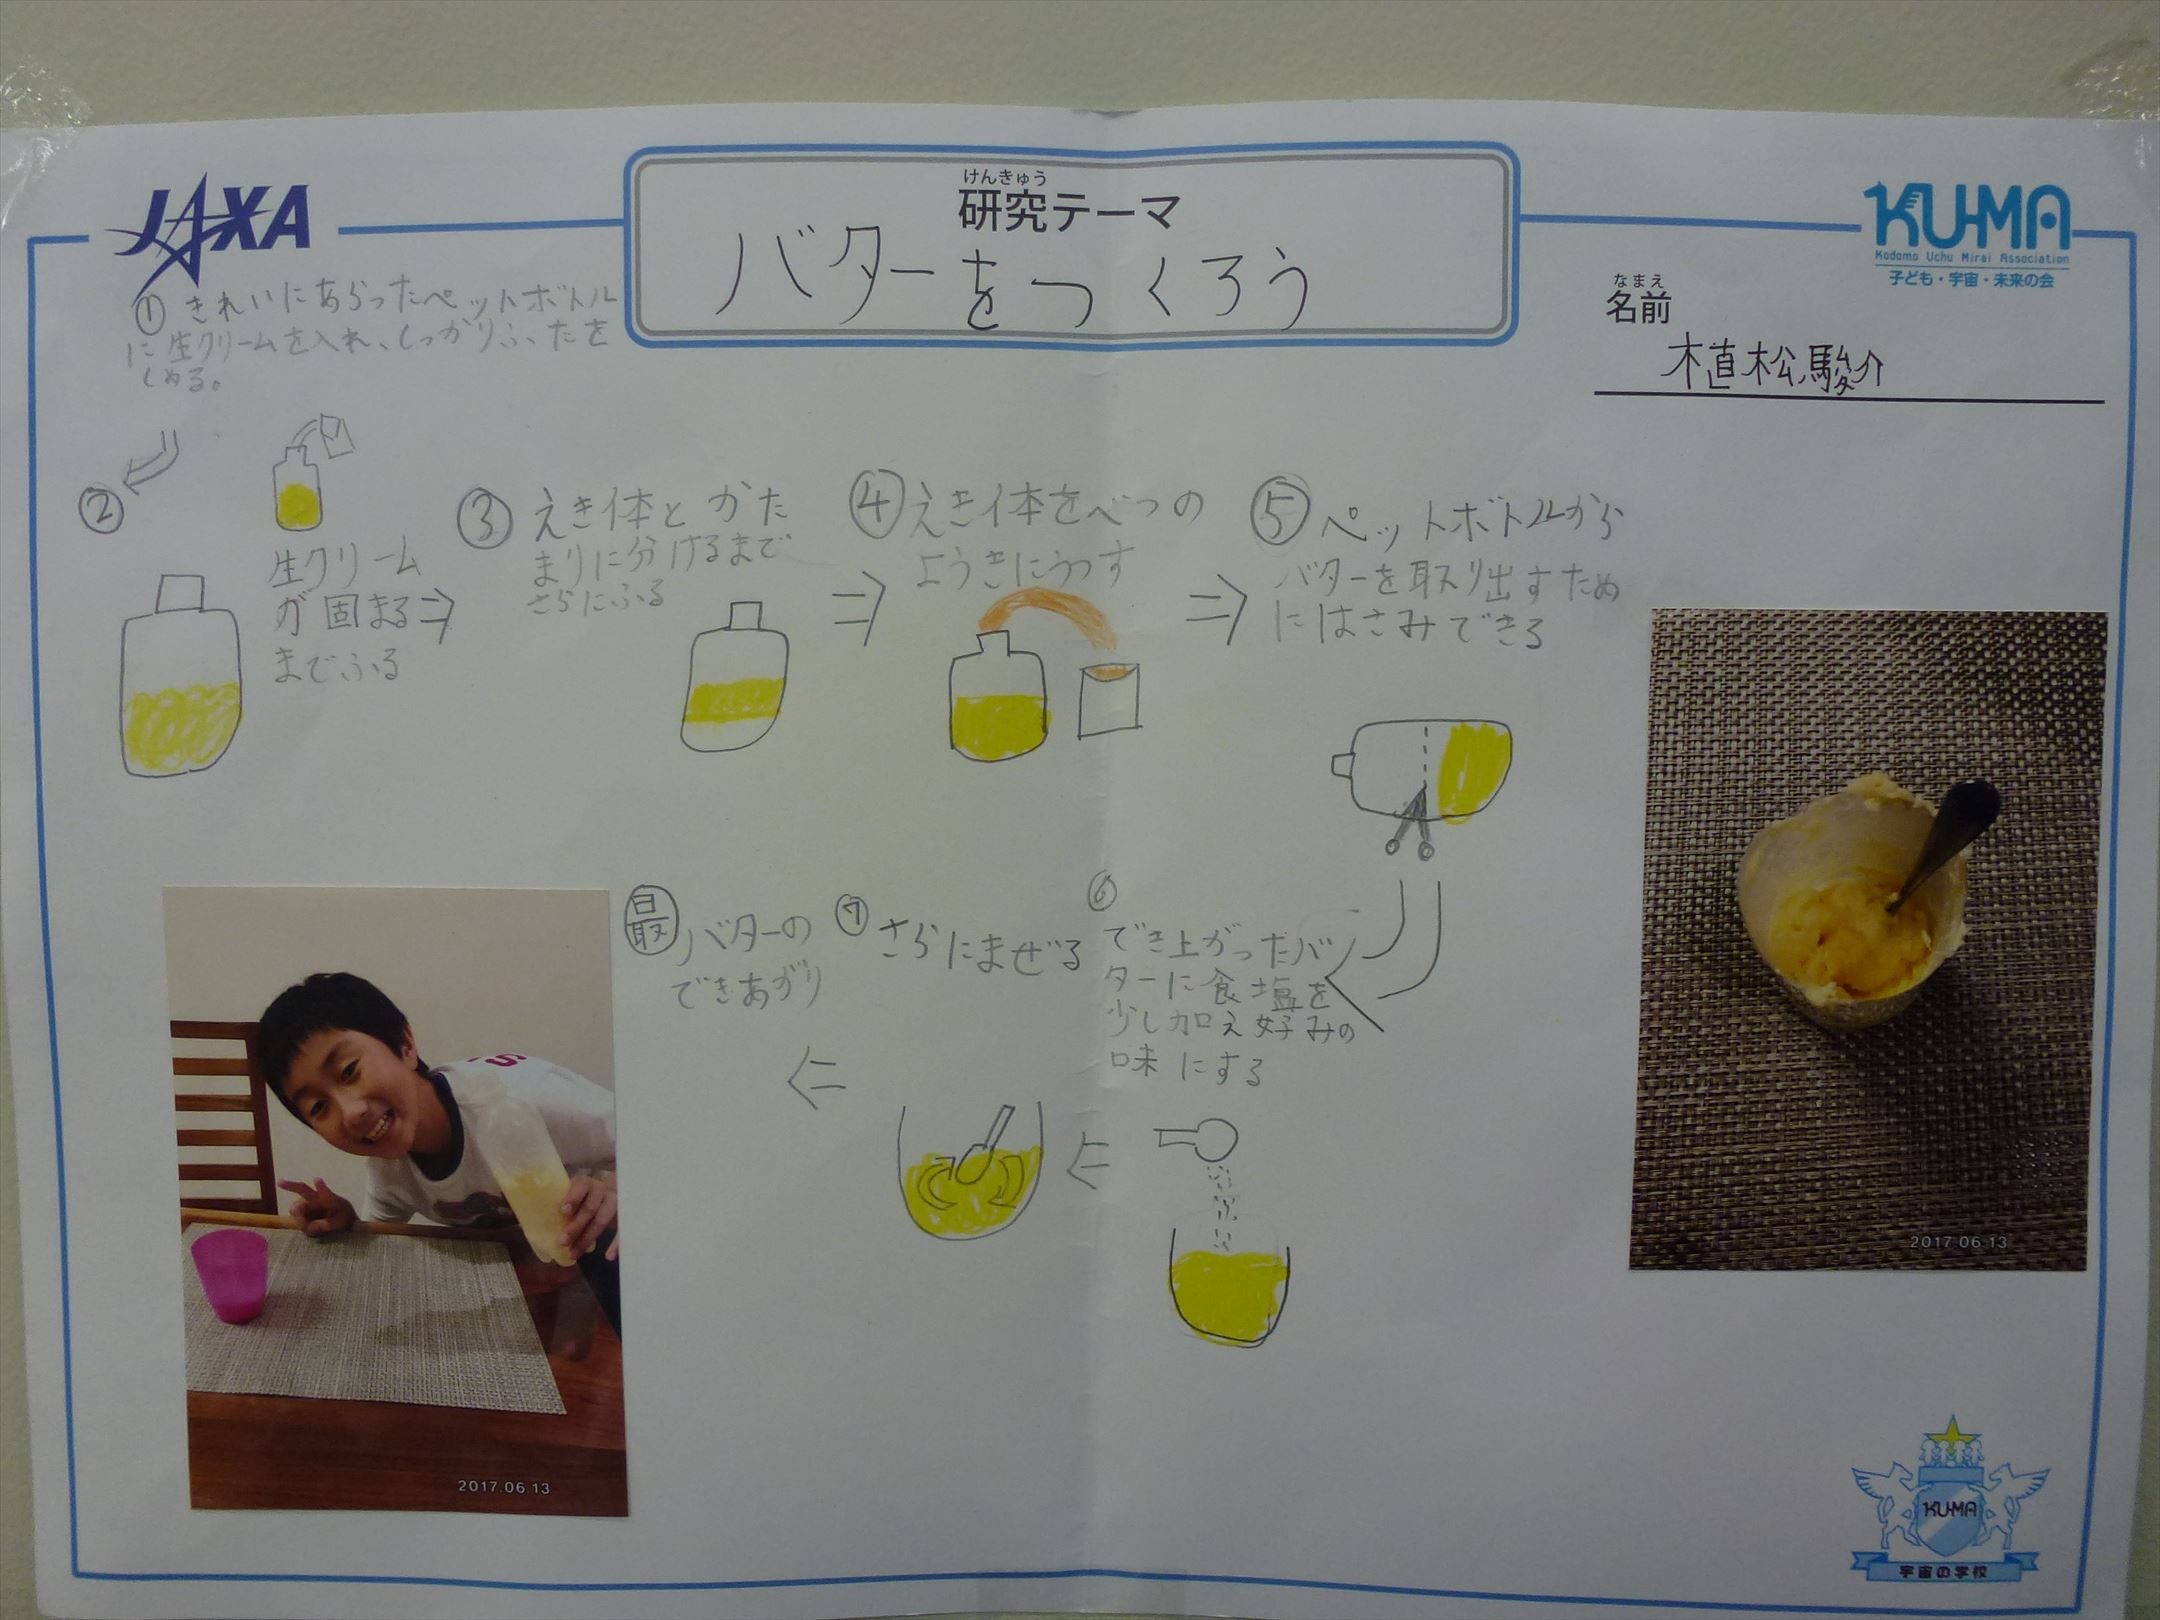 JAXA
けんきゅう
研究テーマ
バターをつくろう
KU-MA
Kodomo Uchu Mirai Association
子ども・宇宙・未来の会
なまえ
名前
植松駿介
① きれいにあらったペットボトル
に生クリームを入れ、しっかりふたを
しめる。
②
生クリーム
が固まる
までふる
③ えき体とかた
まりに分けるまで
さらにふる
④ えき体をべつの
ようきにうつす
⑤ ペットボトルから
バターを取り出すため
にはさみできる
⑥
でき上がったバ
ターに食塩を
少し加え好みの
味にする
⑦ さらにまぜる
最 バターの
できあがり
2017.06.13
2017.06.13
KU-MA
宇宙の学校